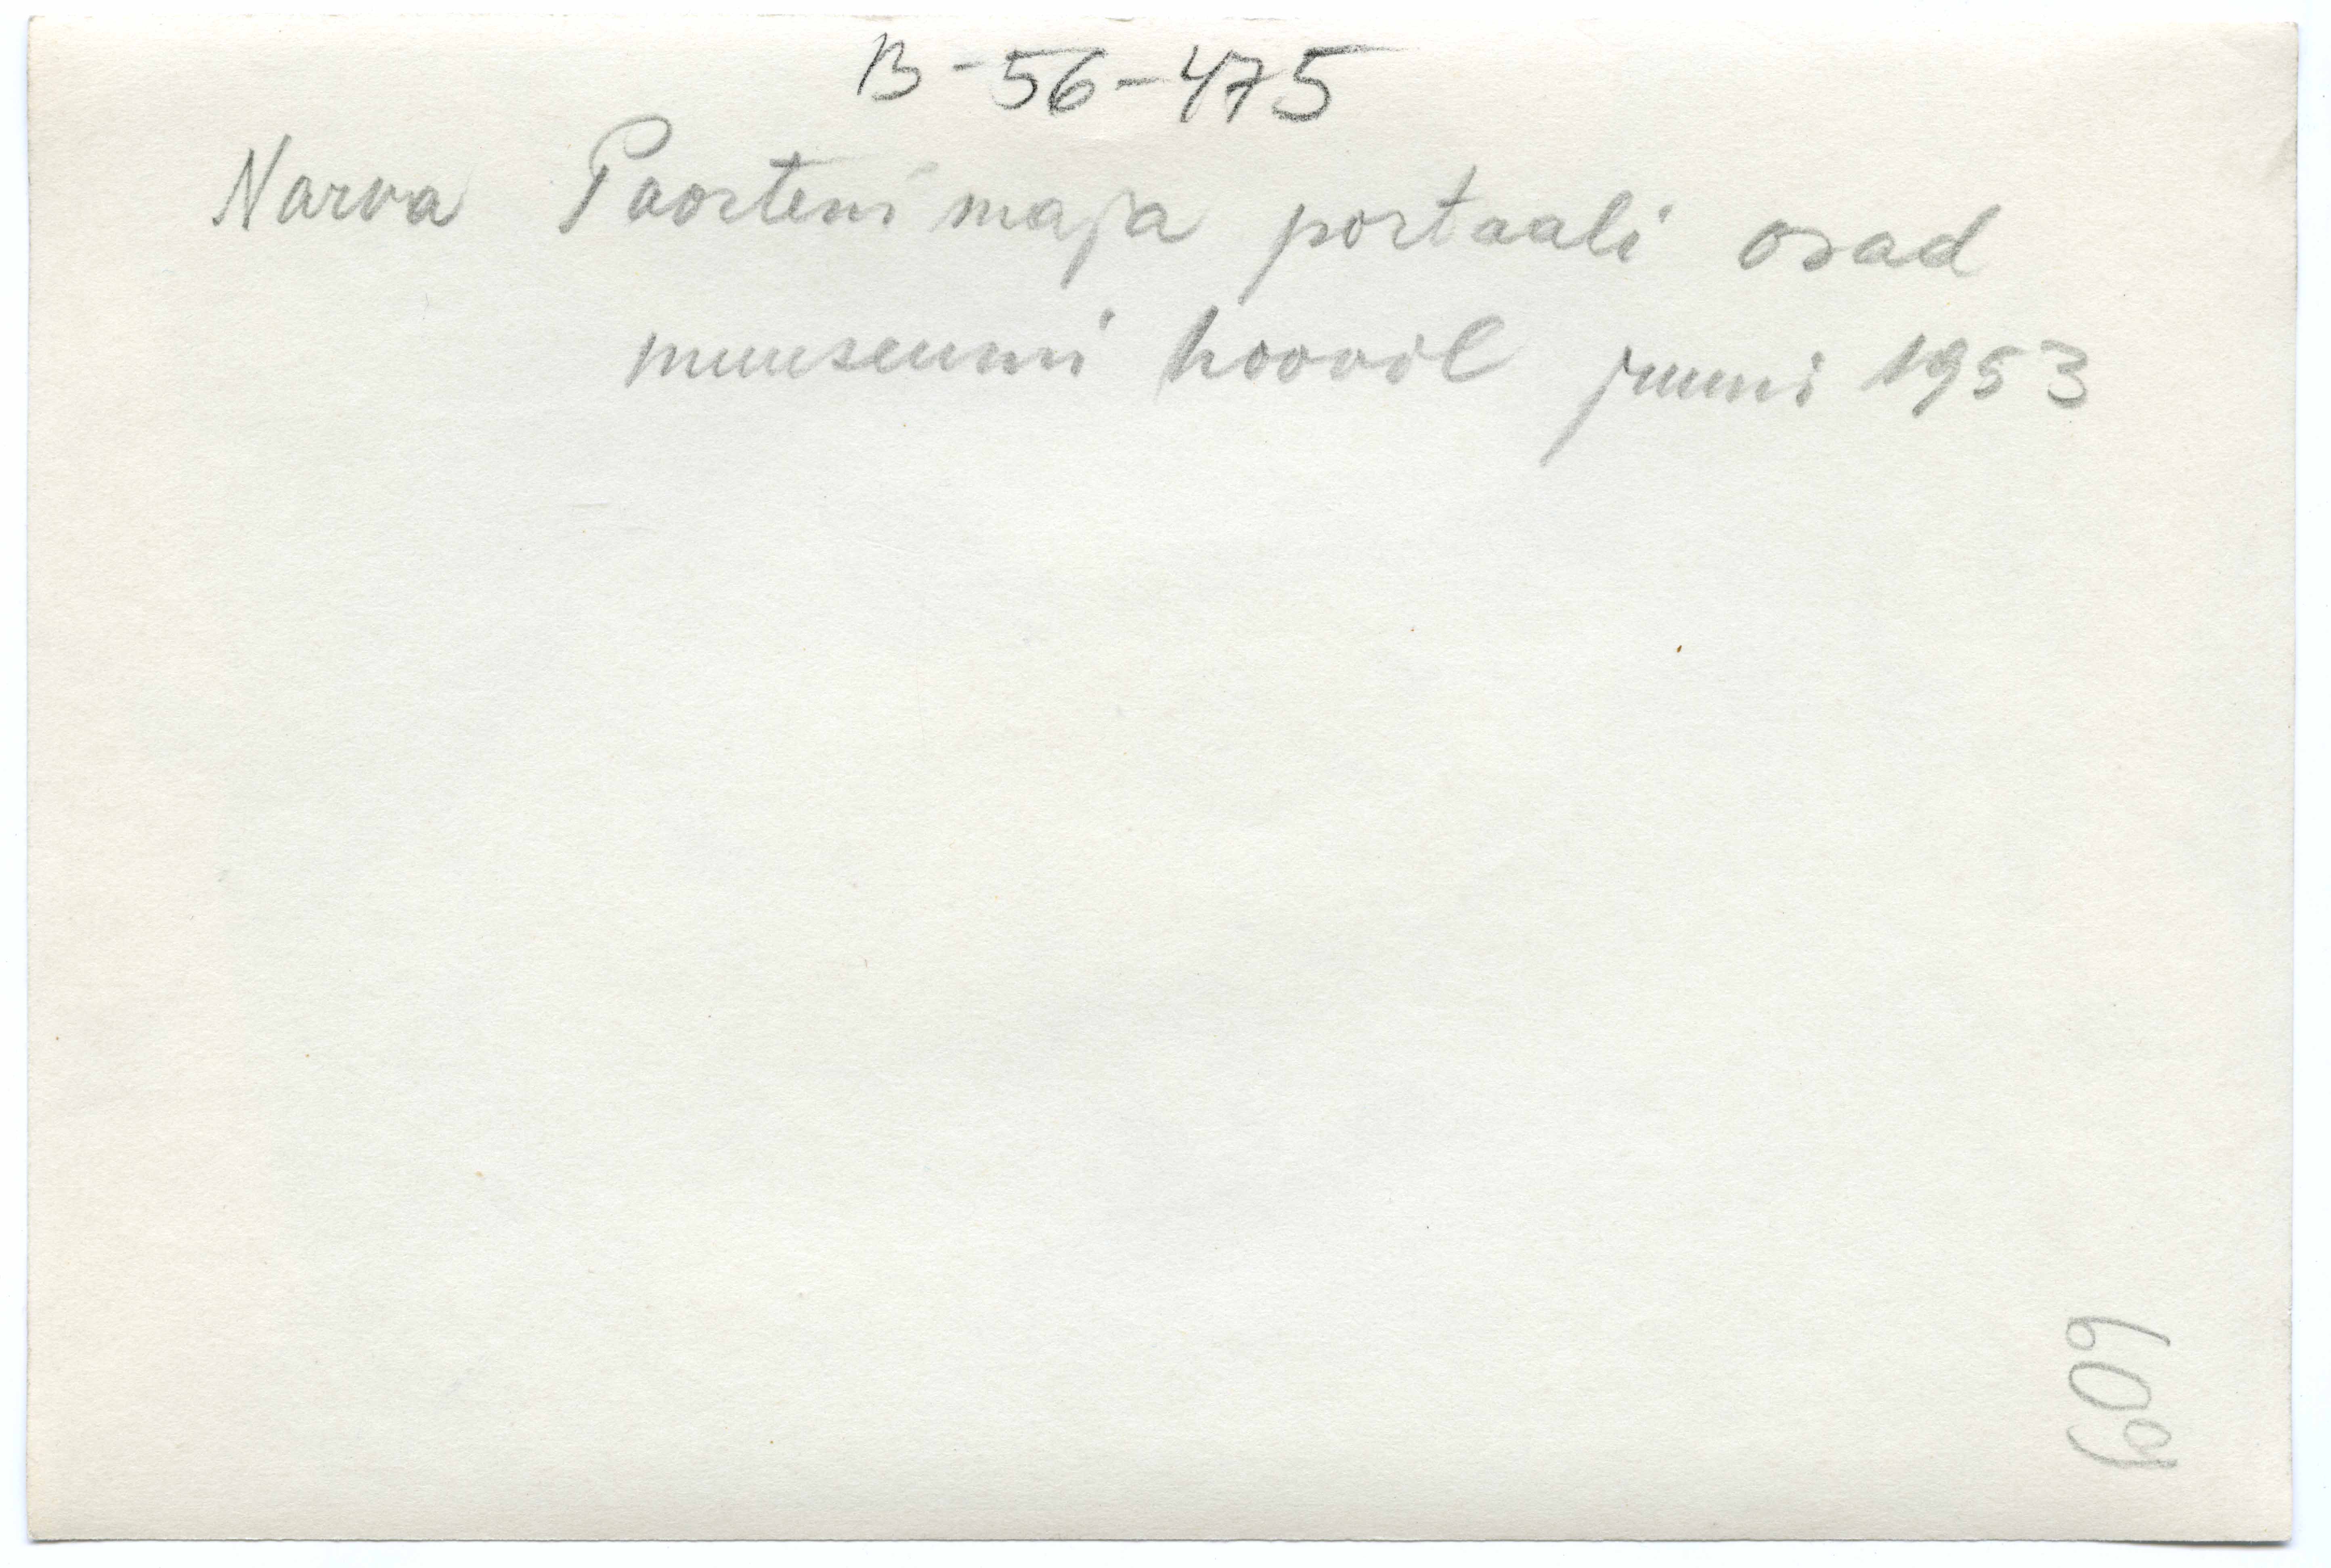 B-56-475
Narva Poorteni maja portaali osad
muuseumi hoovil juuni 1953
609